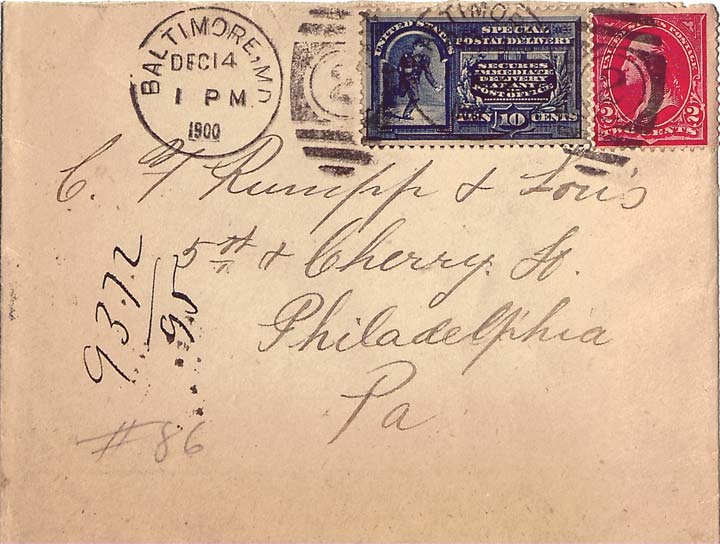 BALTIMORE, MD.
DEC 14
1 PM
1900
UNITED STATES
SPECIAL
POSTAL DELIVERY
SECURES
IMMEDIATE
DELIVERY
AT ANY
POST OFFICE
TEN 10 CENTS
2 TWO CENTS 2
C F Rumpp & Sons
5th & Cherry St.
Philadelphia
Pa
9372
95
#86